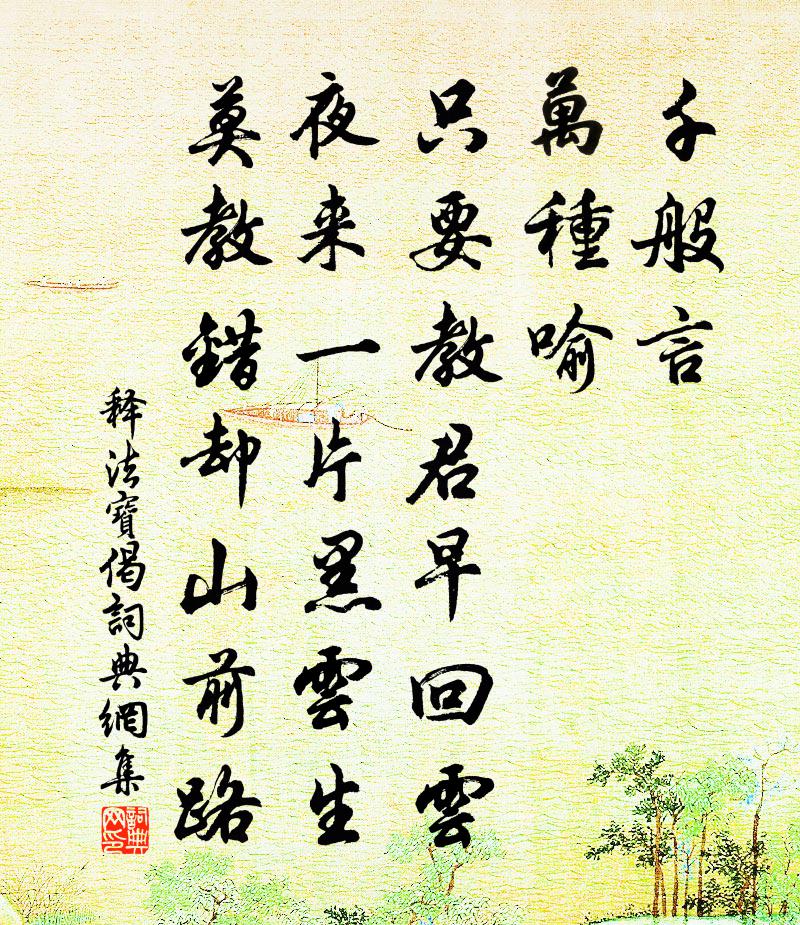 千般言
萬種喻
只要教君早回雲
夜来一片黑雲生
莫教錯却山前路
释法寶偈詞典網集
詞典网印